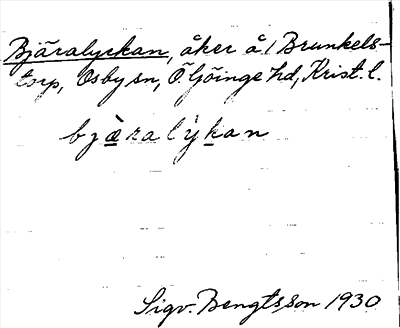 Bjäralyckan, åker å 1 Brunkels-
torp, Osby sn, Ö Göinge hd, Krist. l.
bjæ̀ralỳkan
Sigv. Bengtsson 1930